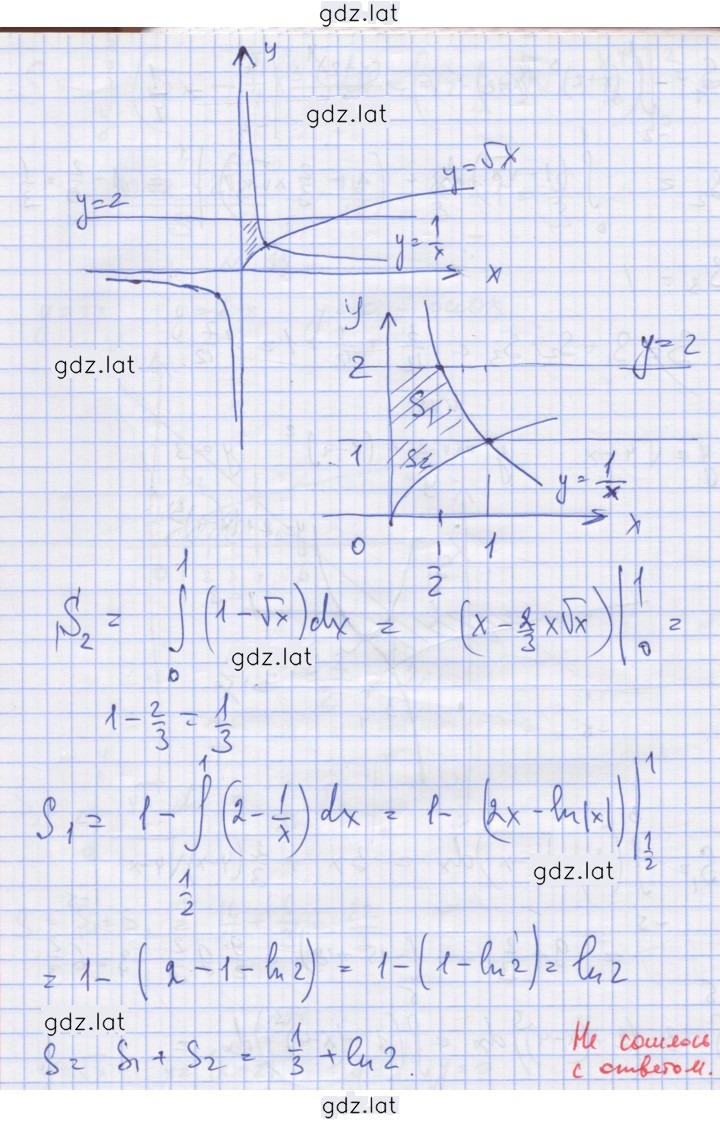 gdz.lat
y
gdz.lat
y=√x
y=2
y=1/x
x
y
gdz.lat
2
y=2
S₁
1
S₂
y=1/x
0
1/2
1
x
S₂ = ∫₀¹ (1-√x)dx = (x - 2/3 x√x)|₀¹ =
gdz.lat
1 - 2/3 = 1/3
S₁ = 1 - ∫_{1/2}^{1} (2 - 1/x) dx = 1 - (2x - ln|x|)|_{1/2}^{1}
gdz.lat
= 1 - (2 - 1 - ln 2) = 1 - (1 - ln 2) = ln 2
gdz.lat
S = S₁ + S₂ = 1/3 + ln 2.
Не сошлось
с ответом.
gdz.lat